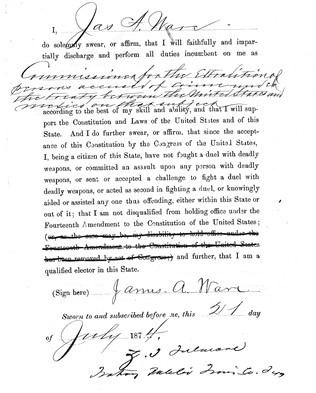 I, Jas A. Ware
do solemny swear, or affirm, that I will faithfully and impar-
tially discharge and perform all duties incumbent on me as
Commissioner for the Extradition of
persons accused of crime under
the treaty between the United States and
Mexico on that subject
according to the best of my skill and ability, and that I will sup-
port the Constitution and Laws of the United States and of this
State. And I do further swear, or affirm, that since the accept-
ance of this Constitution by the Congress of the United States,
I, being a citizen of this State, have not fought a duel with deadly
weapons, or committed an assault upon any person with deadly
weapons, or sent or accepted a challenge to fight a duel with
deadly weapons, or acted as second in fighting a duel, or knowingly
aided or assisted any one thus offending, either within this State or
out of it; that I am not disqualified from holding office under the
Fourteenth Amendment to the Constitution of the United States;
(or, as the case may be, my disability to hold office under the
Fourteenth Amendment to the Constitution of the United States
has been removed by act of Congress) and further, that I am a
qualified elector in this State.
(Sign here) James. A. Ware
Sworn to and subscribed before me, this 21 day
of July 1874.
Notary Public Travis Co. Tex